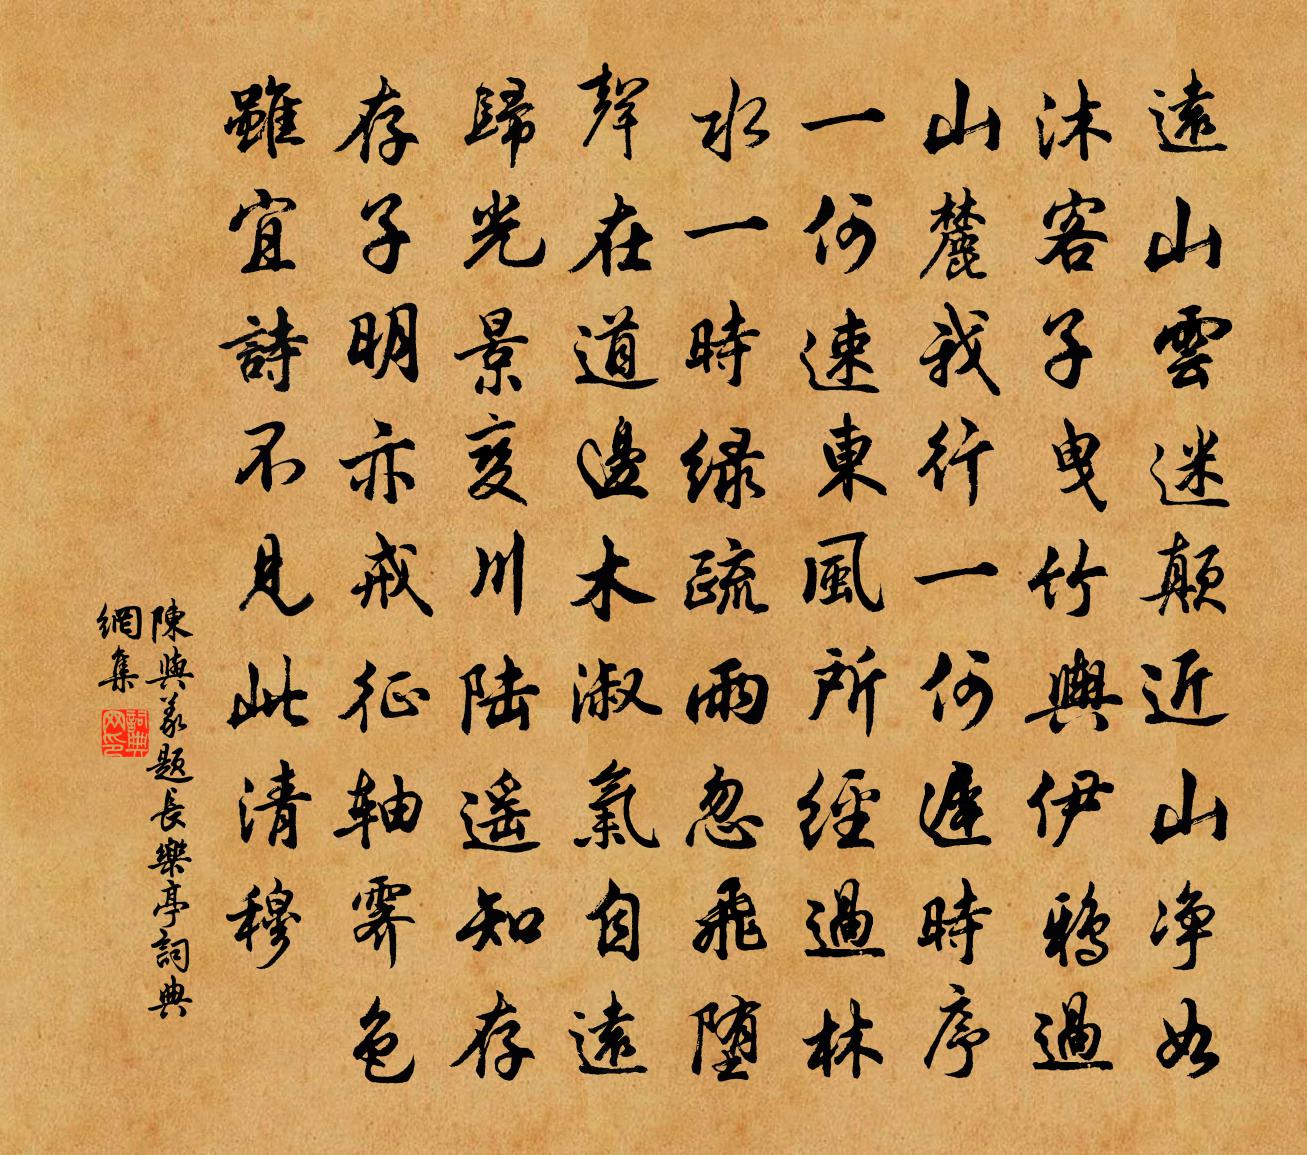 遠山雲迷顛近山净如
沐客子曳竹輿伊鴉過
山麓我行一何遲時序
一何速東風所經過林
水一時緑疏雨忽飛堕
聲在道邊木淑氣自遠
歸光景变川陆遥知存
存子明亦戒征轴霁色
雖宜詩不見此清穆
陳與義題長樂亭詞典
網集
詞典網印